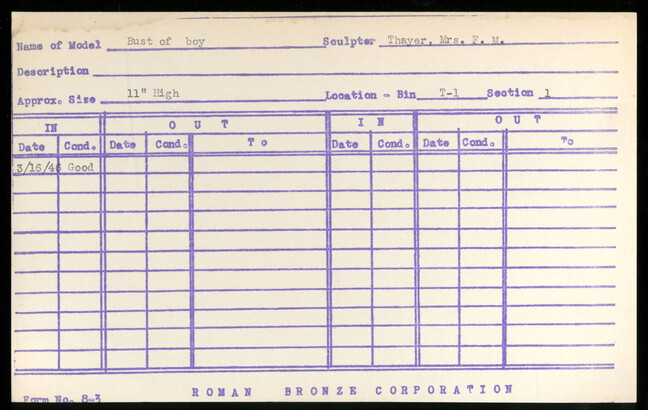 Name of Model Bust of boy Sculptor Thayer, Mrs. F. M.
Description
Approx. Size 11" High Location - Bin T-1 Section 1
IN OUT IN OUT
Date Cond. Date Cond. To Date Cond. Date Cond. To
3/16/46 Good
Form No. 8-3 ROMAN BRONZE CORPORATION